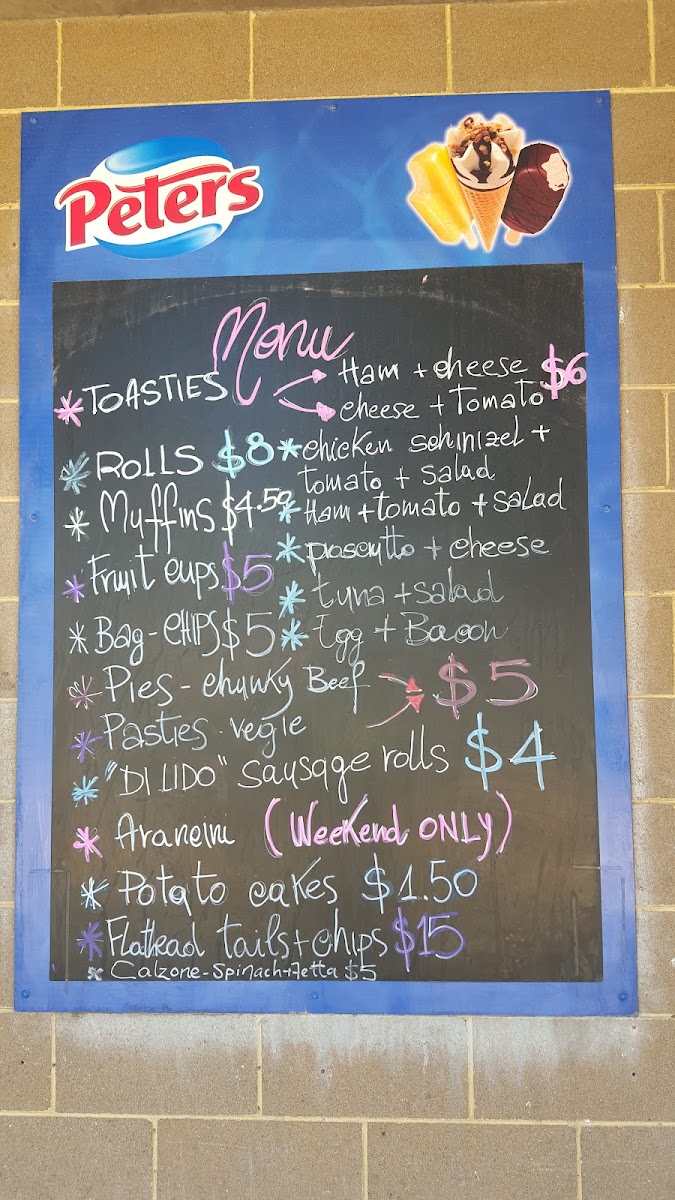 Peters
Menu
* TOASTIES Ham + cheese $6
cheese + Tomato
* ROLLS $8 * chicken schnizel +
tomato + salad
* Muffins $4.50 * Ham + tomato + salad
* Fruit cups $5 * proscutto + cheese
* tuna + salad
* Bag - CHIPS $5 * Egg + Bacon
* Pies - chunky Beef $5
* Pasties - vegie
* "DI LIDO" sausage rolls $4
* Arancini (Weekend ONLY)
* Potato cakes $1.50
* Flathead tails + chips $15
* Calzone - Spinach + fetta $5